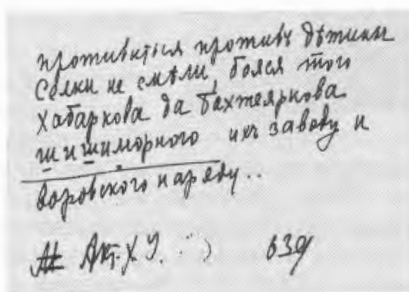 противиться противъ дѣтины
Сѣлки не смѣли, бояся того
Хабаркова да Бахтеяркова
шишиморного ихъ заводу и
воровского наряду..
Акт. Х. У. 639